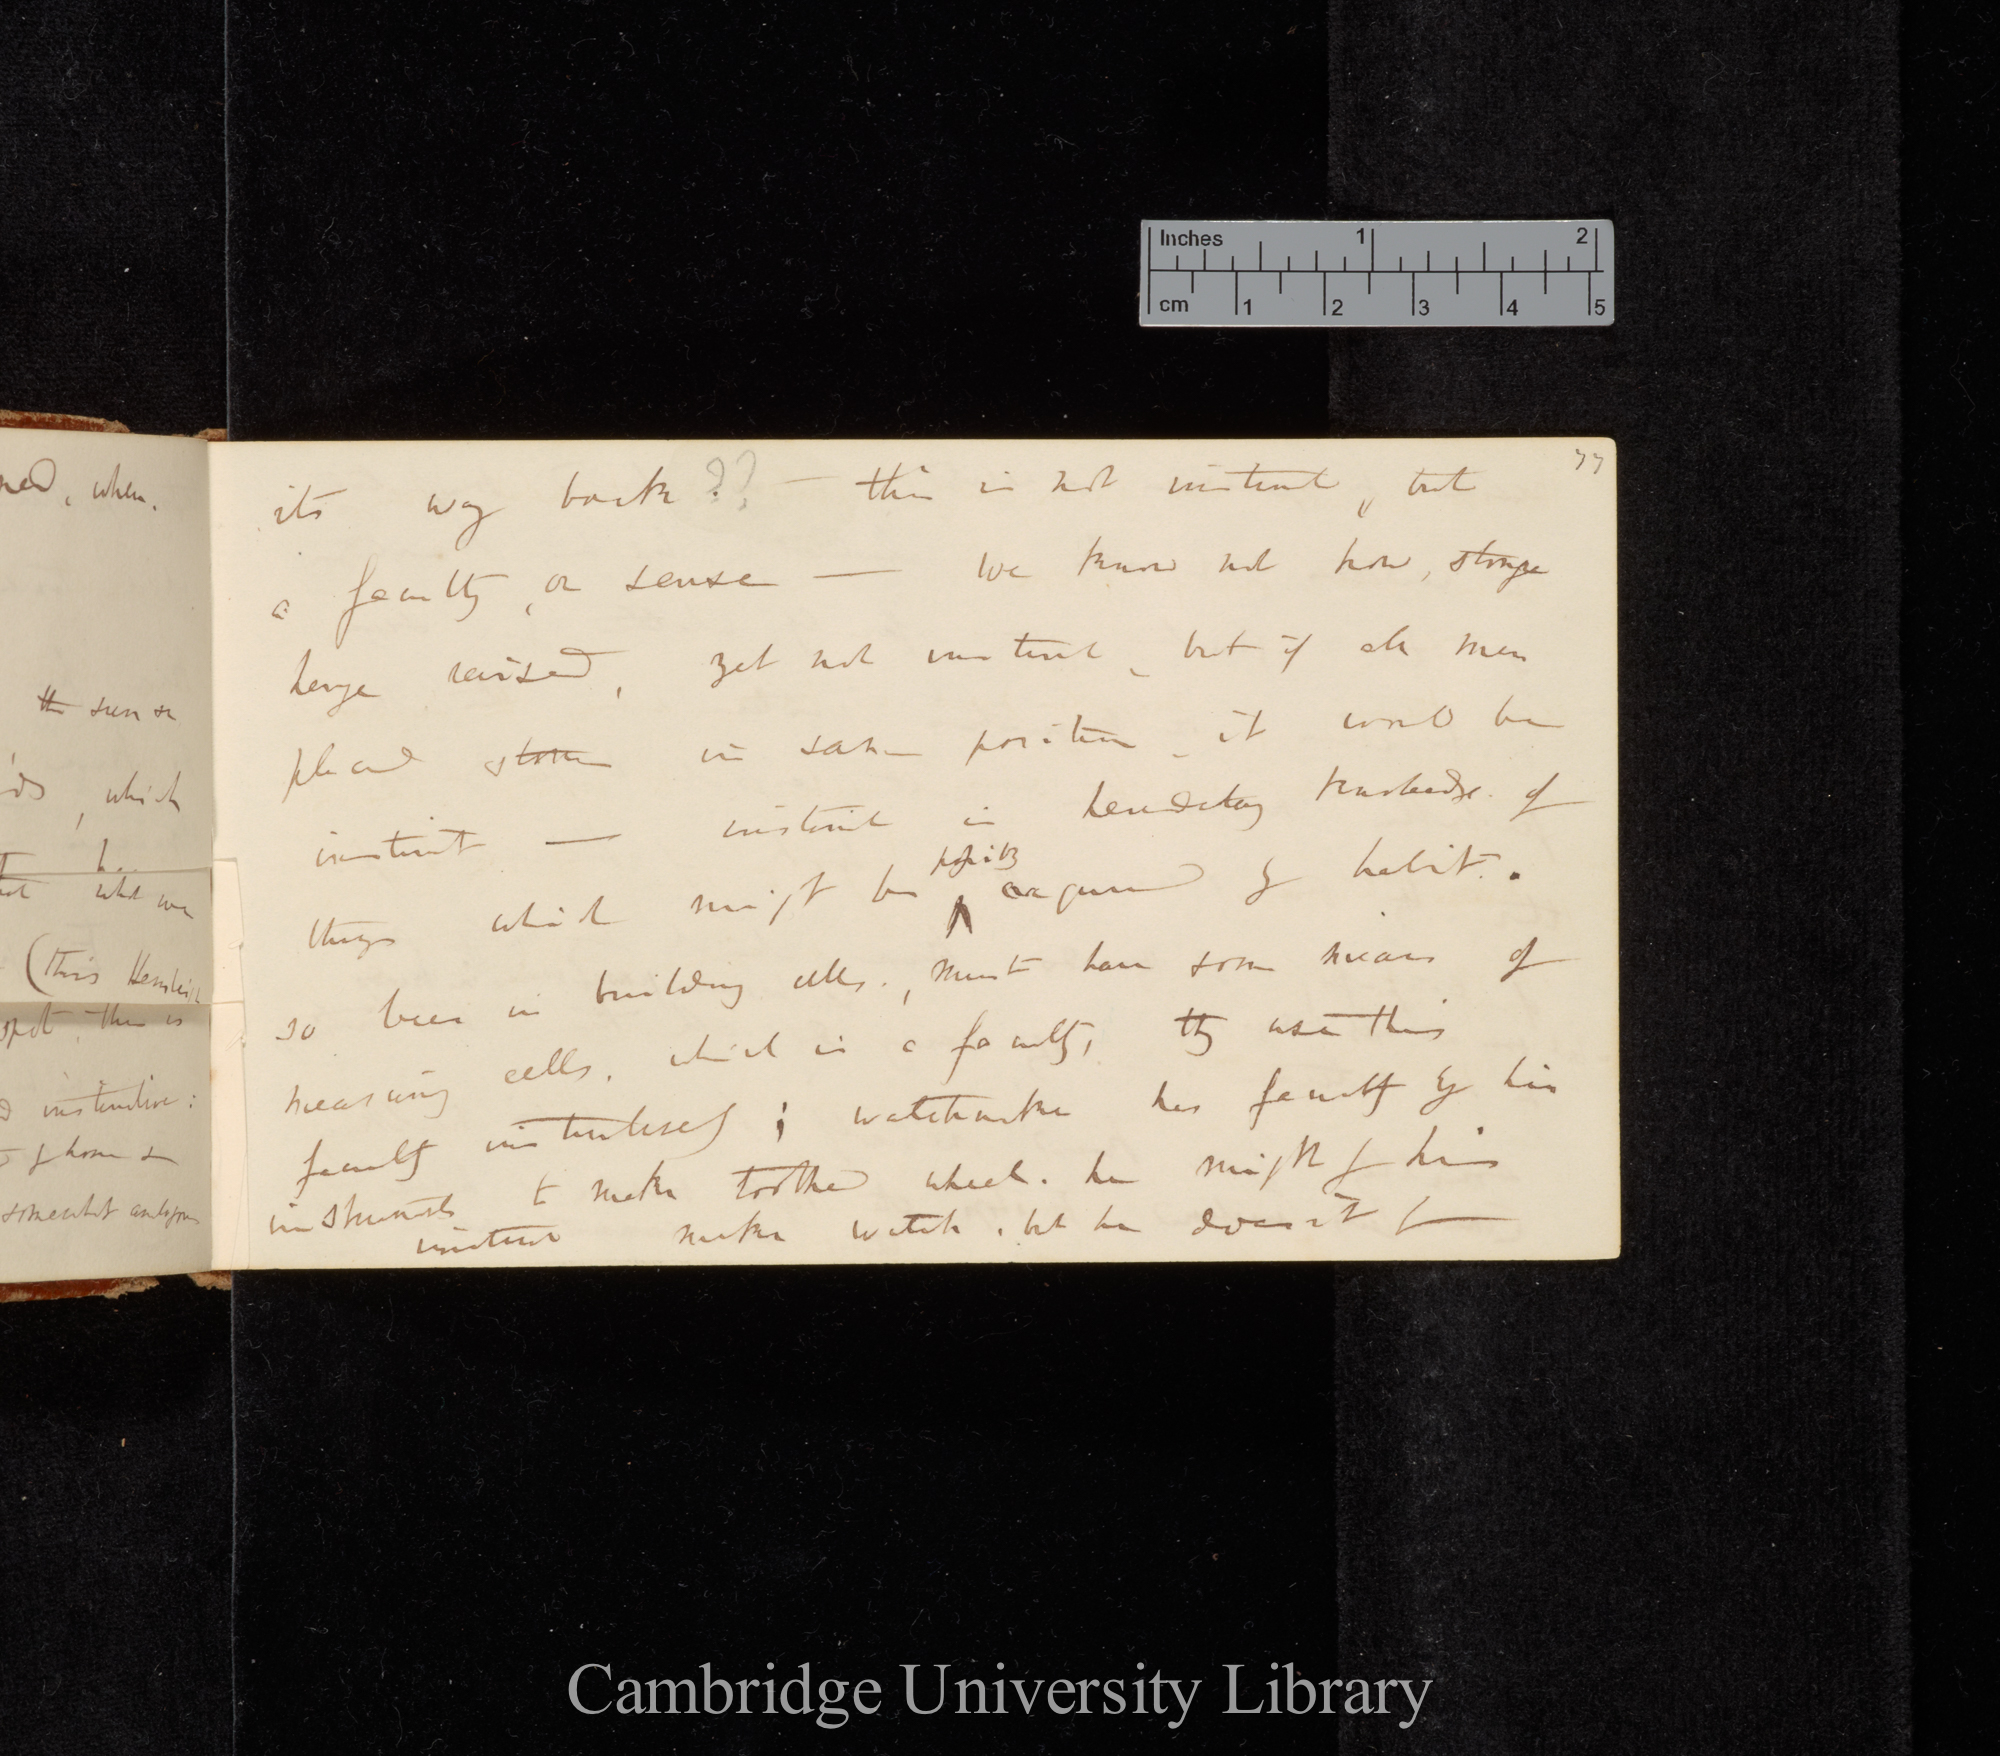 Inches 1 2
cm 1 2 3 4 5
77
its way back ?? — this is not instinct, but
a faculty, or sense — We know not how, stonge
henge raised, yet not instinct, but if all men
placed stone in same position, it would be
instinct — instinct is hereditary knowledge of
things which might be possibly acquired by habit.
so bees in building cells, must have some means of
measuring cells, which is a faculty, they use this
faculty instinctively; watchmaker has faculty by his
instruments to make toothed wheel, he might by his
instinct make watch, but he does it by —
, when.
the sun or
, which
what we
(this Hensleigh
spot, there is
instinctive:
of home or
somewhat analogous
Cambridge University Library